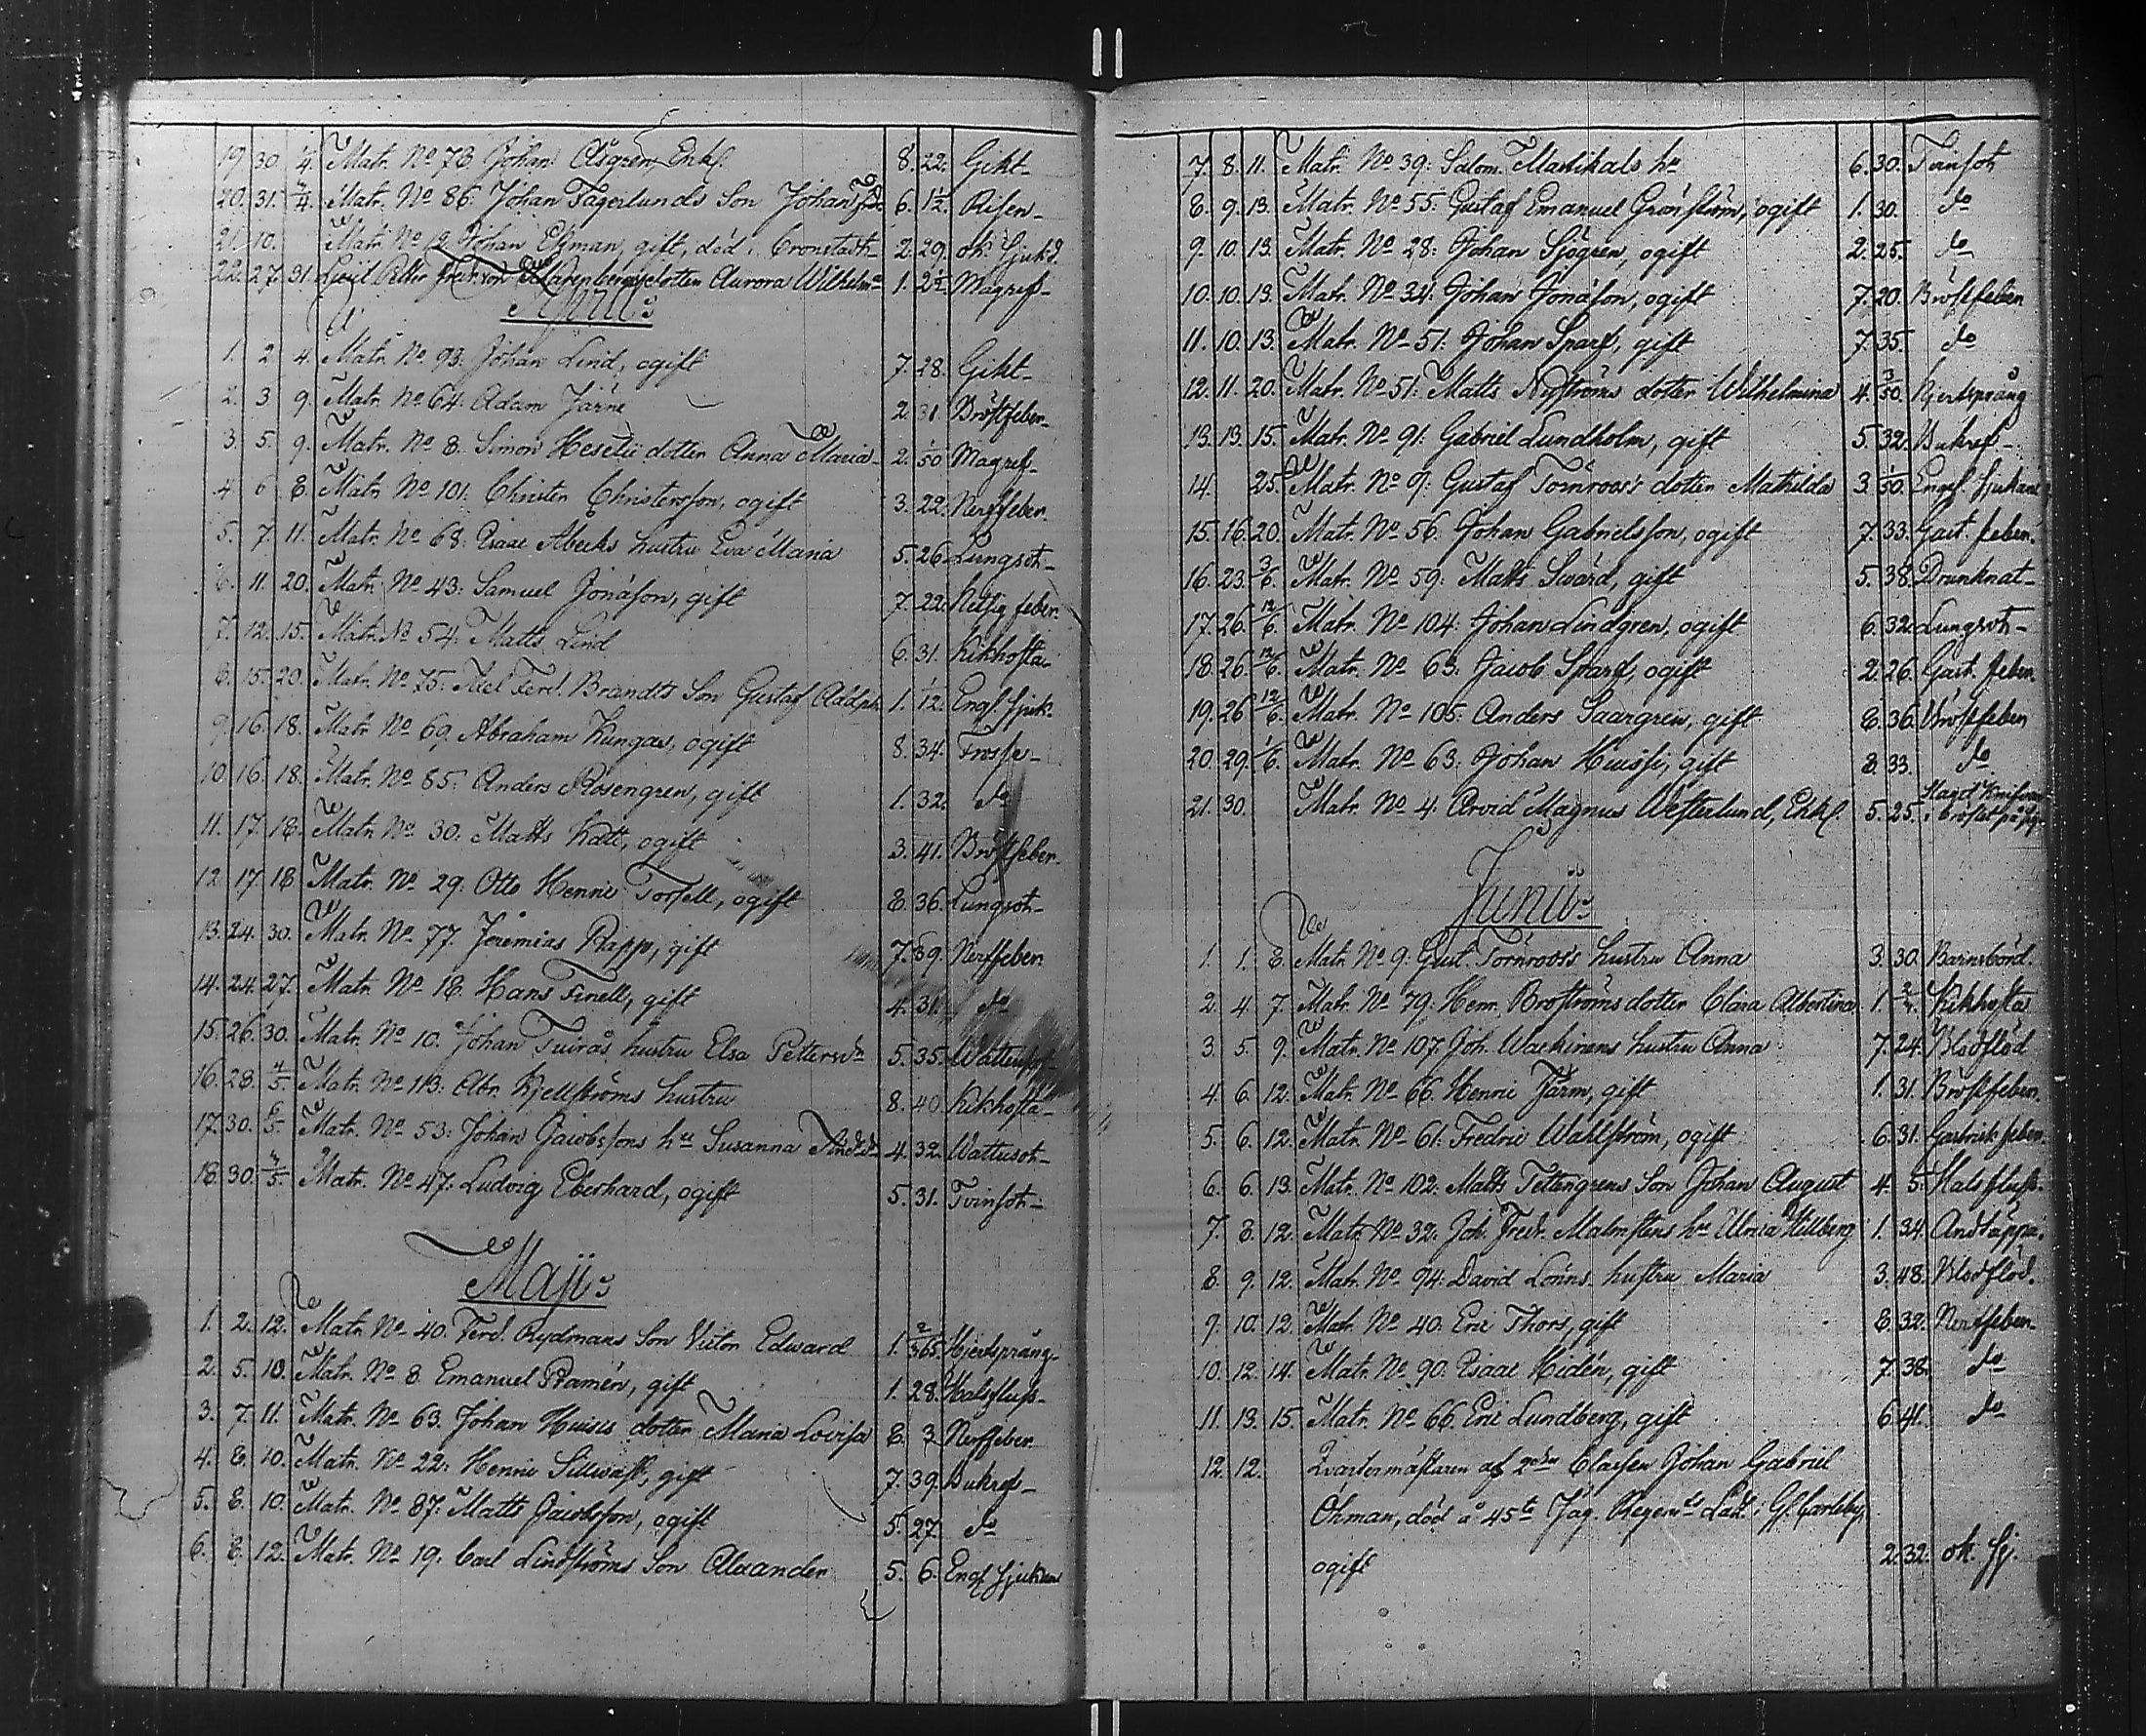 19 30 /4. Matr. No 73 Johan Åsgren, Enkl. 8. 22. Gikt
20. 31. 4/4. Matr. No 86: Johan Fagerlunds Son Johan 6. 1½. Risen
21. 10. Matr. No 2 Johan Ekman, gift, död i Cronstadt 2. 29. ok. Sjukd.
22. 27. 31. Petter Fredr. von dotter Aurora Wilhelma 1. 2½. Magref
Aprilis
1. 2 4. Matr. No 93. Johan Lind, ogift 7. 28. Gikt
2. 3 9. Matr. No 64: Adam Järne 2 31 Bröstfeber
3. 5. 9. Matr. No 8. Simon Heselii dotter Anna Maria 2. 1/50 Magref
4 6 8. Matr. No 101: Christer Christersson, ogift 3. 22. Nerffeber.
5. 7. 11. Matr. No 68: Isaac Abecks hustru Eva Maria 5. 26 Lungsot
6. 11. 20. Matr. No 43: Samuel Jonasson, gift 7 22. Hetsig feber.
7. 12. 15. Matr. No 54: Matts Lind 6. 31. Kikhosta
8. 15. 20. Matr. No 75: Axel Ferd. Brandts Son Gustaf Adolph 1. 1/12. Engl. sjuk.
9. 16. 18. Matr No 69. Abraham Kungas, ogift 8. 34. Frossa
10. 16. 18. Matr. No 85: Anders Rosengren, gift 1. 32. do
11. 17. 18. Matr. No 30: Matts Katt, ogift 3. 41. Bröstfeber.
12 17. 18 Matr. No 29: Otto Henric Forsell, ogift 8. 36. Lungsot
13. 24. 30. Matr. No 77. Jeremias Rapp, gift 7. 39. Nerffeber.
14. 24. 27. Matr. No 18. Hans Finell, gift 4. 31. do
15. 26. 30. Matr. No 10. Johan Tuiras hustru Elsa Pettersdr 5. 35. Wattusot
16. 28. 4/5. Matr. No 113: Abr. Kjellströms hustru 8. 40. Kikhosta
17. 30. 6/5 Matr. No 53: Johan Jacobssons hu Susanna 4. 32. Wattusot
18. 30. 4/5. Matr. No 47: Ludvig Eberhard, ogift 5. 31. Tvinsot
Maji
1. 2. 12. Matr. No 40. Ferd. Rydmans Son Victor Edward 1. 2/365 Hjertsprång
2. 5. 10. Matr. No 8. Emanuel Pramén, gift 1. 28. Halsfluss
3. 7. 11. Matr. No 63. Johan Huisis dotter Maria Lovisa 8. 3 Nerffeber.
4. 8. 10. Matr. No 22: Henric Sillvast, gift 7. 39. Bukref
5. 8. 10. Matr. No 87: Matts Jacobsson, ogift 5. 27. do
6. 8. 12. Matr. No 19: Carl Lindströms Son Alexander 5. 6. Engl. sjukan
7. 8. 11. Matr. No 39: Salom. Martikals hu 6. 30. Tvinsot
8. 9. 13. Matr. No 55: Gustaf Emanuel Grönström, ogift 1. 30. do
9. 10. 13. Matr. No 28: Johan Sjögren, ogift 2. 25. do
10. 10. 13. Matr. No 34: Johan Jonasson, ogift 7. 20. Bröstfeber
11. 10. 13. Matr. No 51: Johan Sparf, gift 7. 35. do
12. 11. 20. Matr. No 51: Matts Nyströms dotter Wilhelmina 4. 3/50. Hjertsprång
13. 13. 15. Matr. No 91: Gabriel Lundholm, gift 5. 32. Bukref
14. 25. Matr. No 9: Gustaf Törnroos's dotter Mathilda 3. 1/50. Engl. sjukan
15. 16. 20. Matr. No 56. Johan Gabrielsson, ogift 7. 33. Gast. feber.
16. 23. 3/6. Matr. No 59: Matts Swärd, gift 5. 38. Drunknat
17. 26. 12/6. Matr. No 104: Johan Lindgren, ogift 6. 32. Lungsot
18. 26. 12/6. Matr. No 63: Jacob Sparf, ogift 2. 26. Gast. feber.
19. 26 12/6. Matr. No 105: Anders Saargren, gift 8. 36. Bröstfeber
20. 29. 1/6. Matr. No 63: Johan Huisis, gift 8. 33. do
21. 30. Matr. No 4: Arvid Magnus Westerlund, Enkl. 5. 25. Slagd i bröstet på sig
Junii
1. 1. 8. Matr. No 9: Gust. Törnroos's hustru Anna 3. 30. Barnsbörd.
2. 4. 7. Matr. No 79: Henr. Broströms dotter Clara Albertina 1. Kikhosta
3. 5. 9. Matr. No 107: Joh. Waskivens hustru Anna 7. 24. Blodflöd
4. 6. 12. Matr. No 66. Henric Järn, gift 1. 31. Bröstfeber.
5. 6. 12. Matr. No 61: Fredric Wahlström, ogift 6. 31. Gastrisk feber.
6. 6. 13. Matr. No 102: Matts Tettengrens Son Johan August 4. 5. Halsfluss.
7. 8. 12. Matr. No 32: Joh. Fredr. Malmstens hu Ulrica Killberg 1. 34. Andtäppa.
8. 9. 12. Matr. No 94: David Lönns hustru Maria 3. 48. Blodflöd.
9. 10. 12. Matr. No 40: Eric Thors, gift 8. 32. Nerffeber.
10. 12. 14. Matr. No 90: Isaac Hidén, gift 7. 38. do
11. 13. 15. Matr. No 66. Eric Lundberg, gift 6. 41. do
12. 12. Qvartermästaren af 2dra Classen Johan Gabriel
Öhman, död å 45te Jäg. Regem:ts Laz. i Gl. Carleby,
ogift 2. 32. ok. sj.